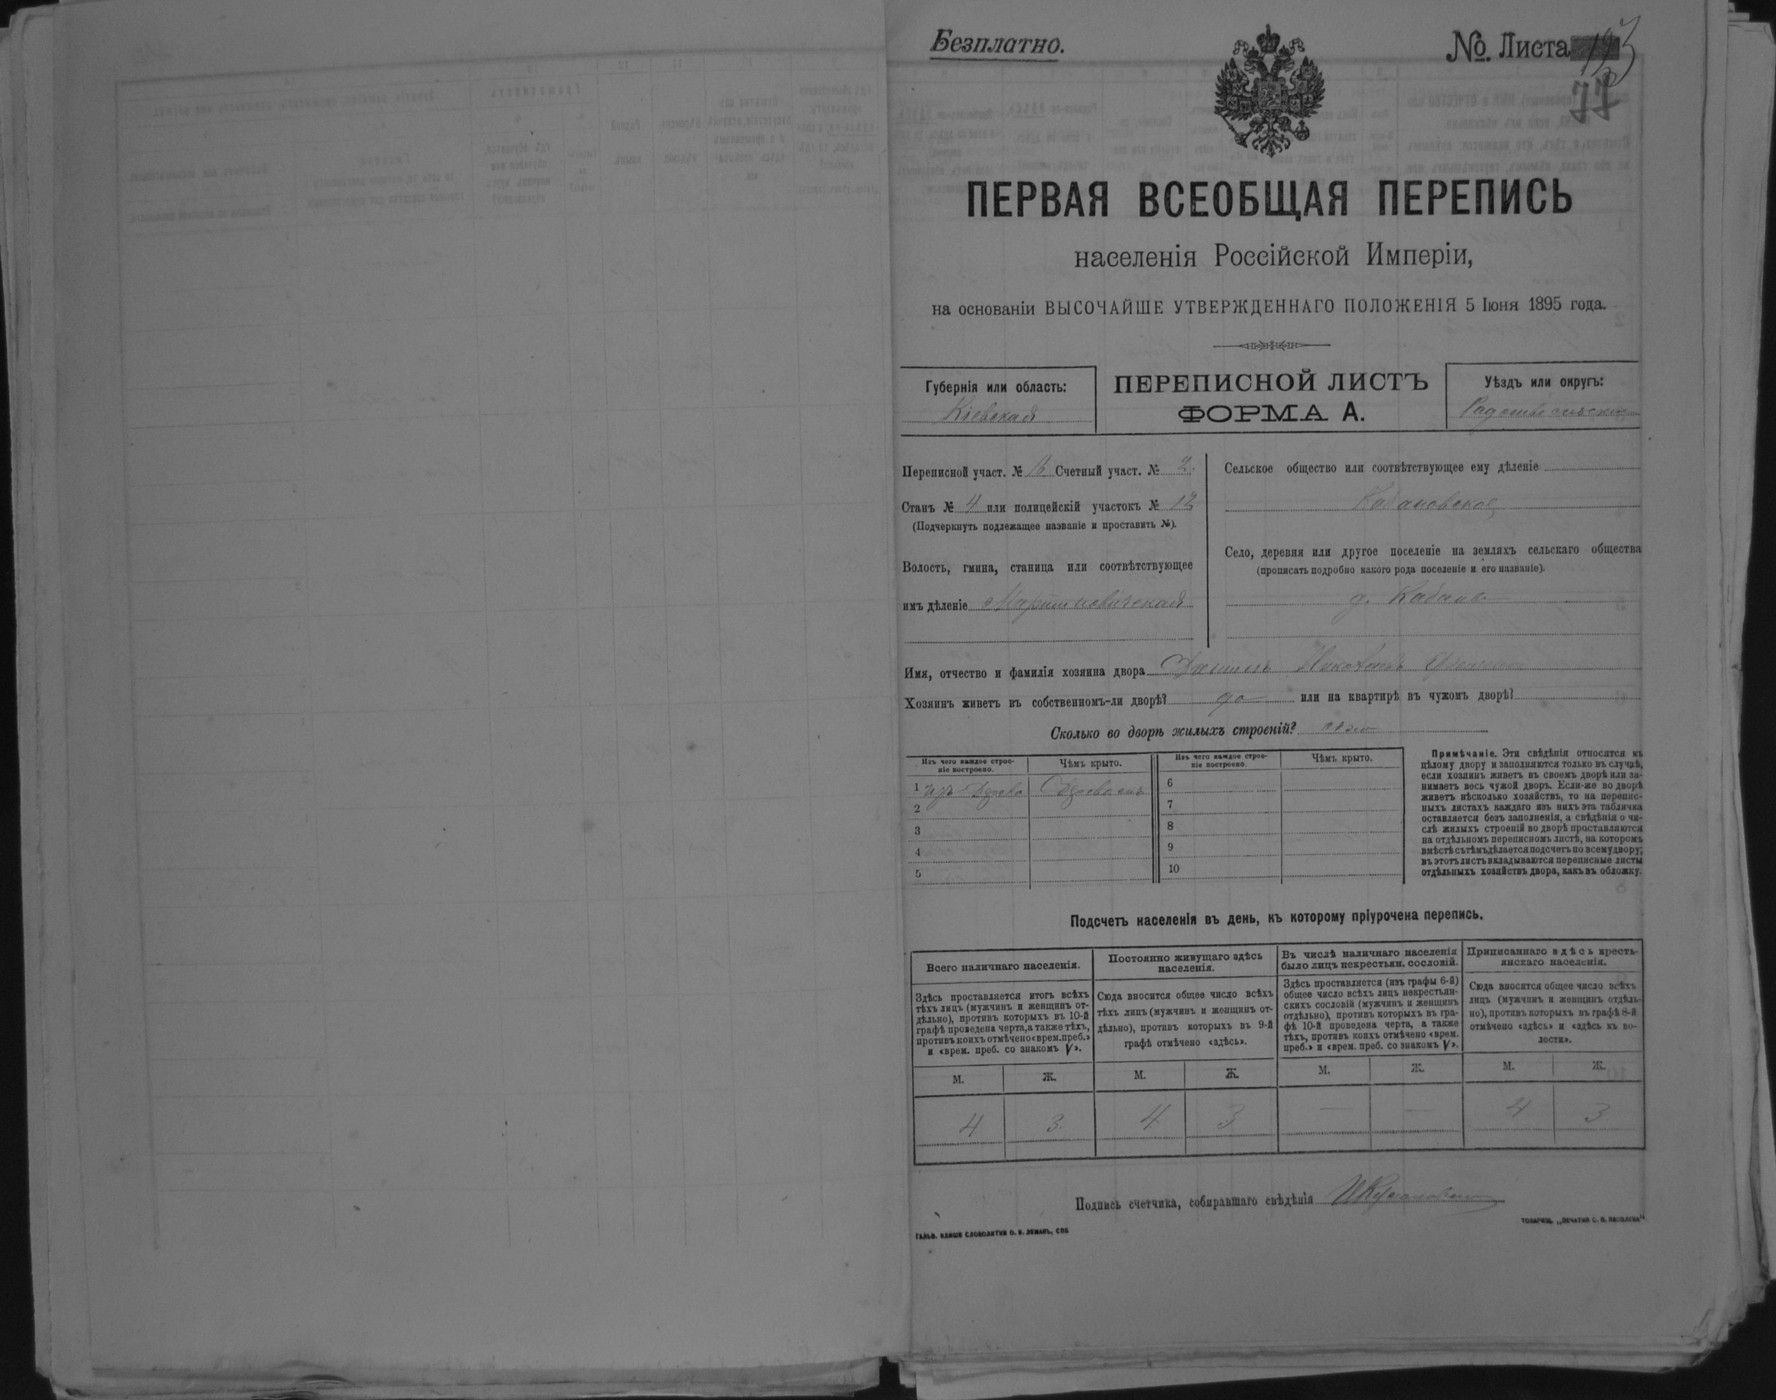 Безплатно.
№. Листа 193
77
ПЕРВАЯ ВСЕОБЩАЯ ПЕРЕПИСЬ
населенія Россійской Имперіи,
на основаніи ВЫСОЧАЙШЕ УТВЕРЖДЕННАГО ПОЛОЖЕНІЯ 5 Іюня 1895 года.
Губернія или область:
Кіевская
ПЕРЕПИСНОЙ ЛИСТЪ
ФОРМА А.
Уѣздъ или округъ:
Радомысльскій
Переписной участ. № Счетный участ. № 2.
Станъ № 4 или полицейскій участокъ № 12
(Подчеркнуть подлежащее названіе и проставить №).
Волость, гмина, станица или соотвѣтствующее
имъ дѣленіе Мартиновичская
Сельское общество или соотвѣтствующее ему дѣленіе
Кабановское
Село, деревня или другое поселеніе на земляхъ сельскаго общества
(прописать подробно какого рода поселеніе и его названіе).
д. Кабаны
Имя, отчество и фамилія хозяина двора
Хозяинъ живетъ въ собственномъ-ли дворѣ? да или на квартирѣ въ чужомъ дворѣ?
Сколько во дворѣ жилыхъ строеній? одно
Изъ чего каждое строеніе построено.
Чѣмъ крыто.
Изъ чего каждое строеніе построено.
Чѣмъ крыто.
1 изъ дерева Деревомъ
2
3
4
5
6
7
8
9
10
Примѣчаніе. Эти свѣдѣнія относятся къ
цѣлому двору и заполняются только въ случаѣ,
если хозяинъ живетъ въ своемъ дворѣ или за-
нимаетъ весь чужой дворъ. Если-же во дворѣ
живетъ нѣсколько хозяйствъ, то на перепис-
ныхъ листахъ каждаго изъ нихъ эта табличка
оставляется безъ заполненія, а свѣдѣнія о чи-
слѣ жилыхъ строеній во дворѣ проставляются
на отдѣльномъ переписномъ листѣ, на которомъ
вмѣстѣ съ тѣмъ дѣлается подсчетъ по всему двору;
въ этотъ листъ вкладываются переписные листы
отдѣльныхъ хозяйствъ двора, какъ въ обложку.
Подсчетъ населенія въ день, къ которому пріурочена перепись.
Всего наличнаго населенія.
Здѣсь проставляется итогъ всѣхъ
тѣхъ лицъ (мужчинъ и женщинъ от-
дѣльно), противъ которыхъ въ 10-й
графѣ проведена черта, а также тѣхъ,
противъ коихъ отмѣчено «врем. преб.»
и «врем. преб. со знакомъ V».
М. Ж.
4 3
Постоянно живущаго здѣсь
населенія.
Сюда вносится общее число всѣхъ
тѣхъ лицъ (мужчинъ и женщинъ от-
дѣльно), противъ которыхъ въ 9-й
графѣ отмѣчено «здѣсь».
М. Ж.
4 3
Въ числѣ наличнаго населенія
было лицъ некрестьян. сословій.
Здѣсь проставляется (изъ графы 6-й)
общее число всѣхъ лицъ некрестьян-
скихъ сословій (мужчинъ и женщинъ
отдѣльно), противъ которыхъ въ гра-
фѣ 10-й проведена черта, а также
тѣхъ, противъ коихъ отмѣчено «врем.
преб.» и «врем. преб. со знакомъ V».
М. Ж.
— —
Приписаннаго здѣсь кресть-
янскаго населенія.
Сюда вносится общее число всѣхъ
лицъ (мужчинъ и женщинъ отдѣль-
но), противъ которыхъ въ графѣ 8-й
отмѣчено «здѣсь» и «здѣсь къ во-
лости».
М. Ж.
4 3
Подпись счетчика, собиравшаго свѣдѣнія
ГАЛЬВ. КЛИШЕ СЛОВОЛИТНИ О. И. ЛЕМАНЪ, СПБ
ТОВАРИЩ. „ПЕЧАТНЯ С. П. ЯКОВЛЕВА“